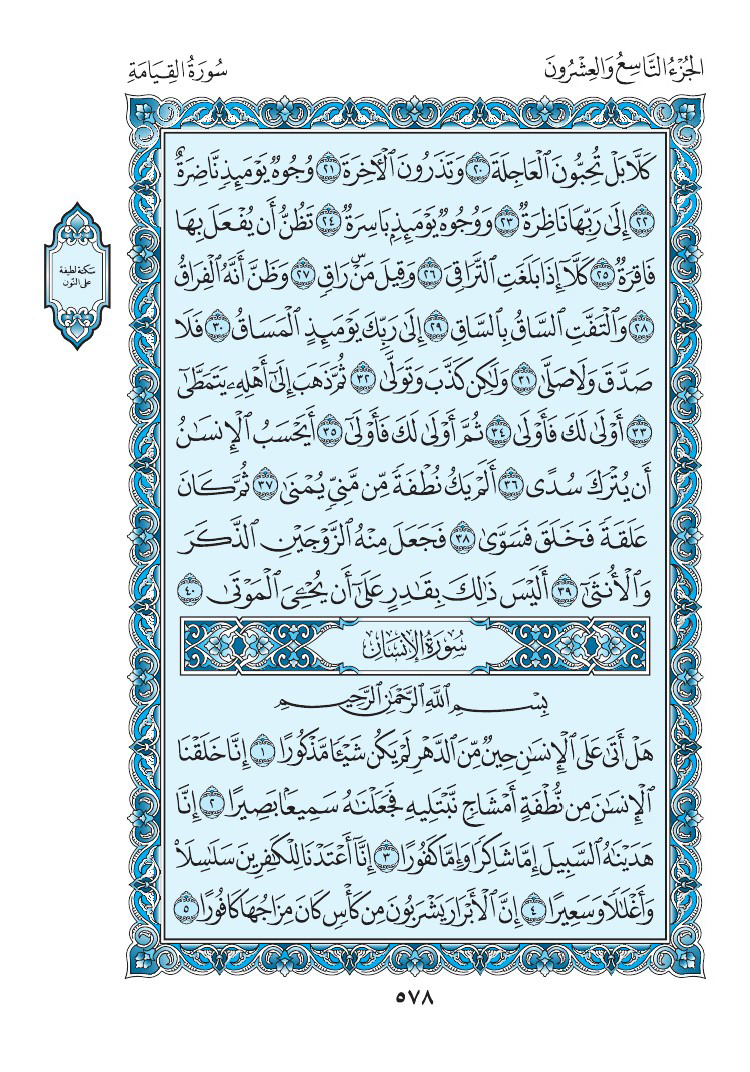 الجُزْءُ التَّاسِعُ وَالعِشْرُونَ
سُورَةُ القِيَامَةِ
كَلَّا بَلْ تُحِبُّونَ ٱلْعَاجِلَةَ ٢٠ وَتَذَرُونَ ٱلْأَخِرَةَ ٢١ وُجُوهٌ يَوْمَئِذٍ نَّاضِرَةٌ
٢٢ إِلَىٰ رَبِّهَا نَاظِرَةٌ ٢٣ وَوُجُوهٌ يَوْمَئِذٍ بَاسِرَةٌ ٢٤ تَظُنُّ أَن يُفْعَلَ بِهَا
فَاقِرَةٌ ٢٥ كَلَّآ إِذَا بَلَغَتِ ٱلتَّرَاقِيَ ٢٦ وَقِيلَ مَنْۜ رَاقٍ ٢٧ وَظَنَّ أَنَّهُ ٱلْفِرَاقُ
٢٨ وَٱلْتَفَّتِ ٱلسَّاقُ بِٱلسَّاقِ ٢٩ إِلَىٰ رَبِّكَ يَوْمَئِذٍ ٱلْمَسَاقُ ٣٠ فَلَا
صَدَّقَ وَلَا صَلَّىٰ ٣١ وَلَٰكِن كَذَّبَ وَتَوَلَّىٰ ٣٢ ثُمَّ ذَهَبَ إِلَىٰٓ أَهْلِهِۦ يَتَمَطَّىٰٓ
٣٣ أَوْلَىٰ لَكَ فَأَوْلَىٰ ٣٤ ثُمَّ أَوْلَىٰ لَكَ فَأَوْلَىٰٓ ٣٥ أَيَحْسَبُ ٱلْإِنسَٰنُ
أَن يُتْرَكَ سُدًى ٣٦ أَلَمْ يَكُ نُطْفَةً مِّن مَّنِيٍّ يُمْنَىٰ ٣٧ ثُمَّ كَانَ
عَلَقَةً فَخَلَقَ فَسَوَّىٰ ٣٨ فَجَعَلَ مِنْهُ ٱلزَّوْجَيْنِ ٱلذَّكَرَ
وَٱلْأُنثَىٰٓ ٣٩ أَلَيْسَ ذَٰلِكَ بِقَٰدِرٍ عَلَىٰٓ أَن يُحْـِۧيَ ٱلْمَوْتَىٰ ٤٠
سُورَةُ الإِنسَانِ
بِسْمِ ٱللَّهِ ٱلرَّحْمَٰنِ ٱلرَّحِيمِ
هَلْ أَتَىٰ عَلَى ٱلْإِنسَٰنِ حِينٌ مِّنَ ٱلدَّهْرِ لَمْ يَكُن شَيْـًٔا مَّذْكُورًا ١ إِنَّا خَلَقْنَا
ٱلْإِنسَٰنَ مِن نُّطْفَةٍ أَمْشَاجٍ نَّبْتَلِيهِ فَجَعَلْنَٰهُ سَمِيعًۢا بَصِيرًا ٢ إِنَّا
هَدَيْنَٰهُ ٱلسَّبِيلَ إِمَّا شَاكِرًا وَإِمَّا كَفُورًا ٣ إِنَّآ أَعْتَدْنَا لِلْكَٰفِرِينَ سَلَٰسِلَا۟
وَأَغْلَٰلًا وَسَعِيرًا ٤ إِنَّ ٱلْأَبْرَارَ يَشْرَبُونَ مِن كَأْسٍ كَانَ مِزَاجُهَا كَافُورًا ٥
سكتة لطيفة
على النّون
٥٧٨